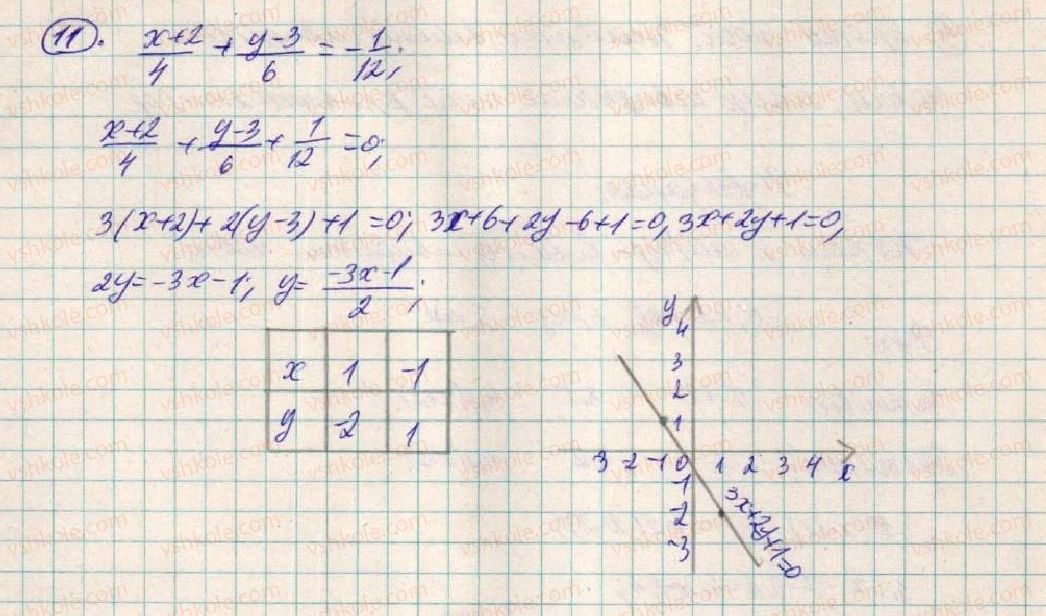 11. (x+2)/4 + (y-3)/6 = -1/12;
(x+2)/4 + (y-3)/6 + 1/12 = 0;
3(x+2)+2(y-3)+1=0; 3x+6+2y-6+1=0, 3x+2y+1=0,
2y=-3x-1; y= (-3x-1)/2;
x 1 -1
y -2 1
y
4
3
2
1
3 -2 -1 0 1 2 3 4 x
-1
-2
-3
3x+2y+1=0
vshkole.com